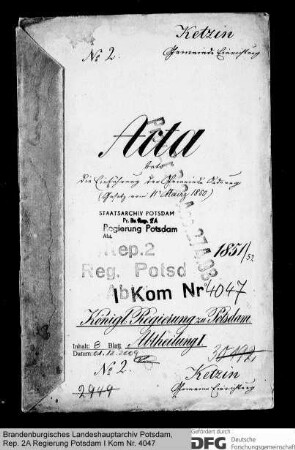 Ketzin
No 2.
Acta
betr.
die Einführung der Gemeinde Ordnung
(Gesetz vom 11 März 1850)
STAATSARCHIV POTSDAM
Pr. Br. Rep. 2A
Regierung Potsdam
Abt.
Rep. 2
1851/52
Reg. Potsd
I Kom Nr 4047
Königl. Regierung zu Potsdam
Abtheilung I.
Inhalt: 8 Blatt
Datum:
No 2.
Ketzin
2949
Brandenburgisches Landeshauptarchiv Potsdam,
Rep. 2A Regierung Potsdam I Kom Nr. 4047
Gefördert durch
DFG Deutsche
Forschungsgemeinschaft